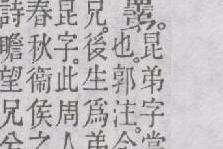 昆弟字當
也。郭注。今
兄。後生為弟
昆字。此周人
春秋衞侯之
詩瞻望兄